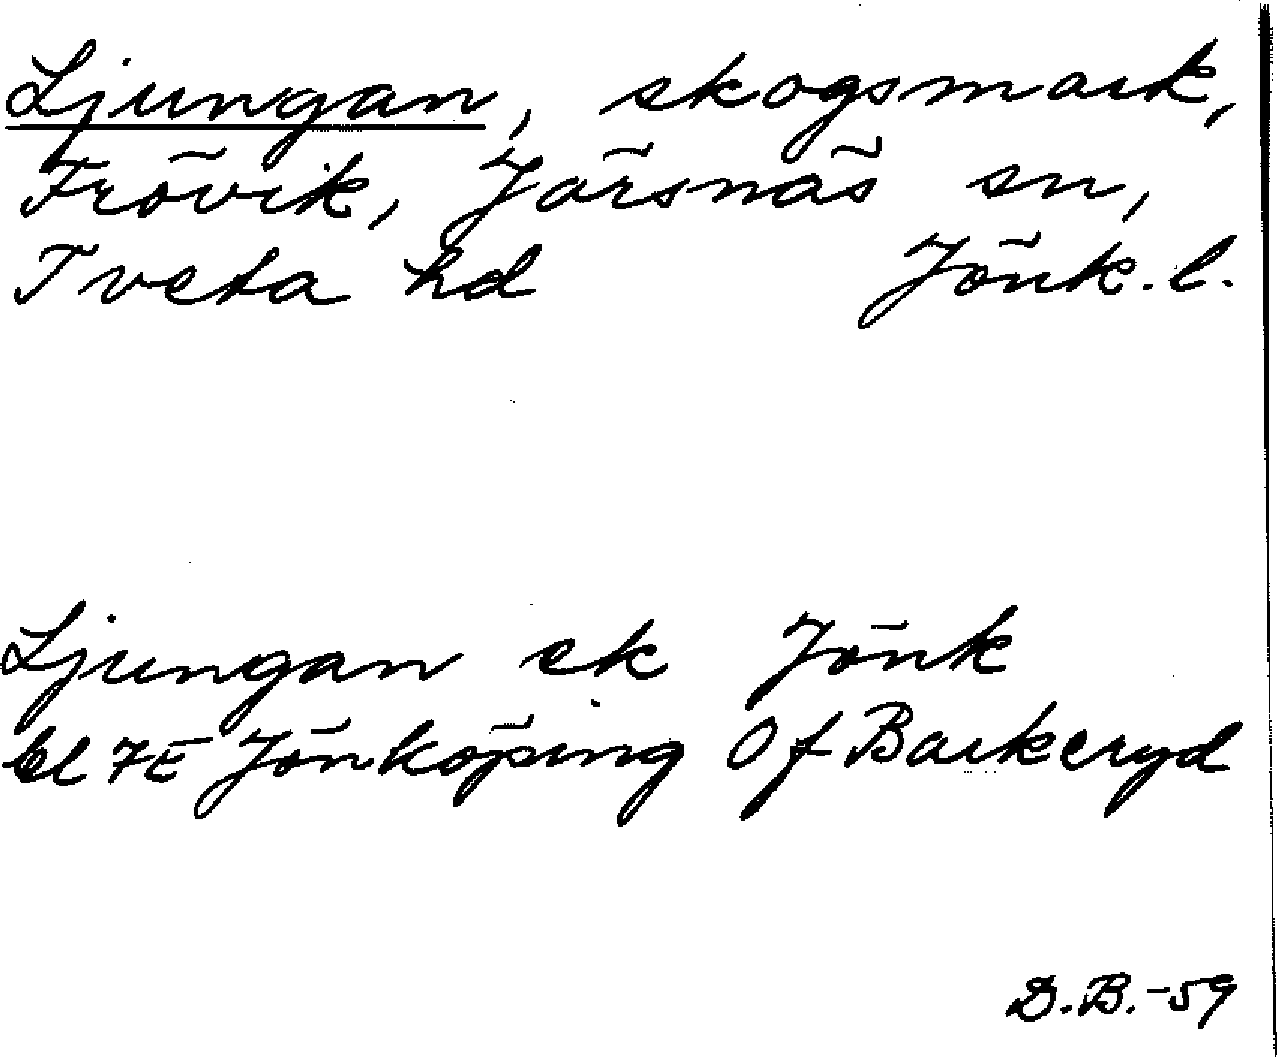 Ljungan, skogsmark,
Frövik, Järsnäs sn,
Tveta hd Jönk. l.
Ljungan ek Jönk
bl 7E Jönköping Of Barkeryd
D.B.-59